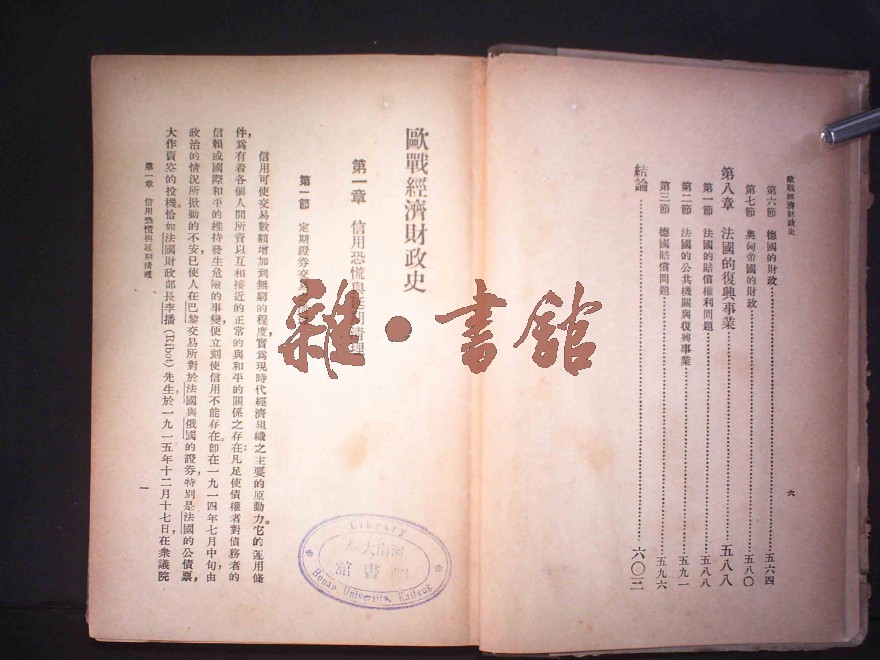 歐戰經濟財政史
第六節 德國的財政 五六四
第七節 奧匈帝國的財政 五八〇
第八章 法國的復興事業 五八八
第一節 法國的賠償權利問題 五八八
第二節 法國的公共機關與復興事業 五九一
第三節 德國賠償問題 五九六
結論 六〇三
六
歐戰經濟財政史
第一章 信用恐慌與延期清理
第一節 定期證券交易
信用可使交易數額增加到無窮的程度,實爲現時代經濟組織之主要的原動力。它的運用條
件,爲有着各個人間所賚以互相接近的正常的與和平的關係之存在:凡足使債權者對債務者的
信賴或國際和平的維持發生危險的事變,便立刻使信用不能存在。卽在一九一四年七月中旬,由
政治的情況所掀動的不安,已使人在巴黎交易所對於法國與俄國的證券,特別是法國的公債票,
大作賣空的投機。恰如法國財政部長李播(Ribot)先生於一九一五年十二月十七日,在衆議院
第一章 信用恐慌與延期清理
一
雜·書館
Library
河南大
書館
Honan University, Kaifeng